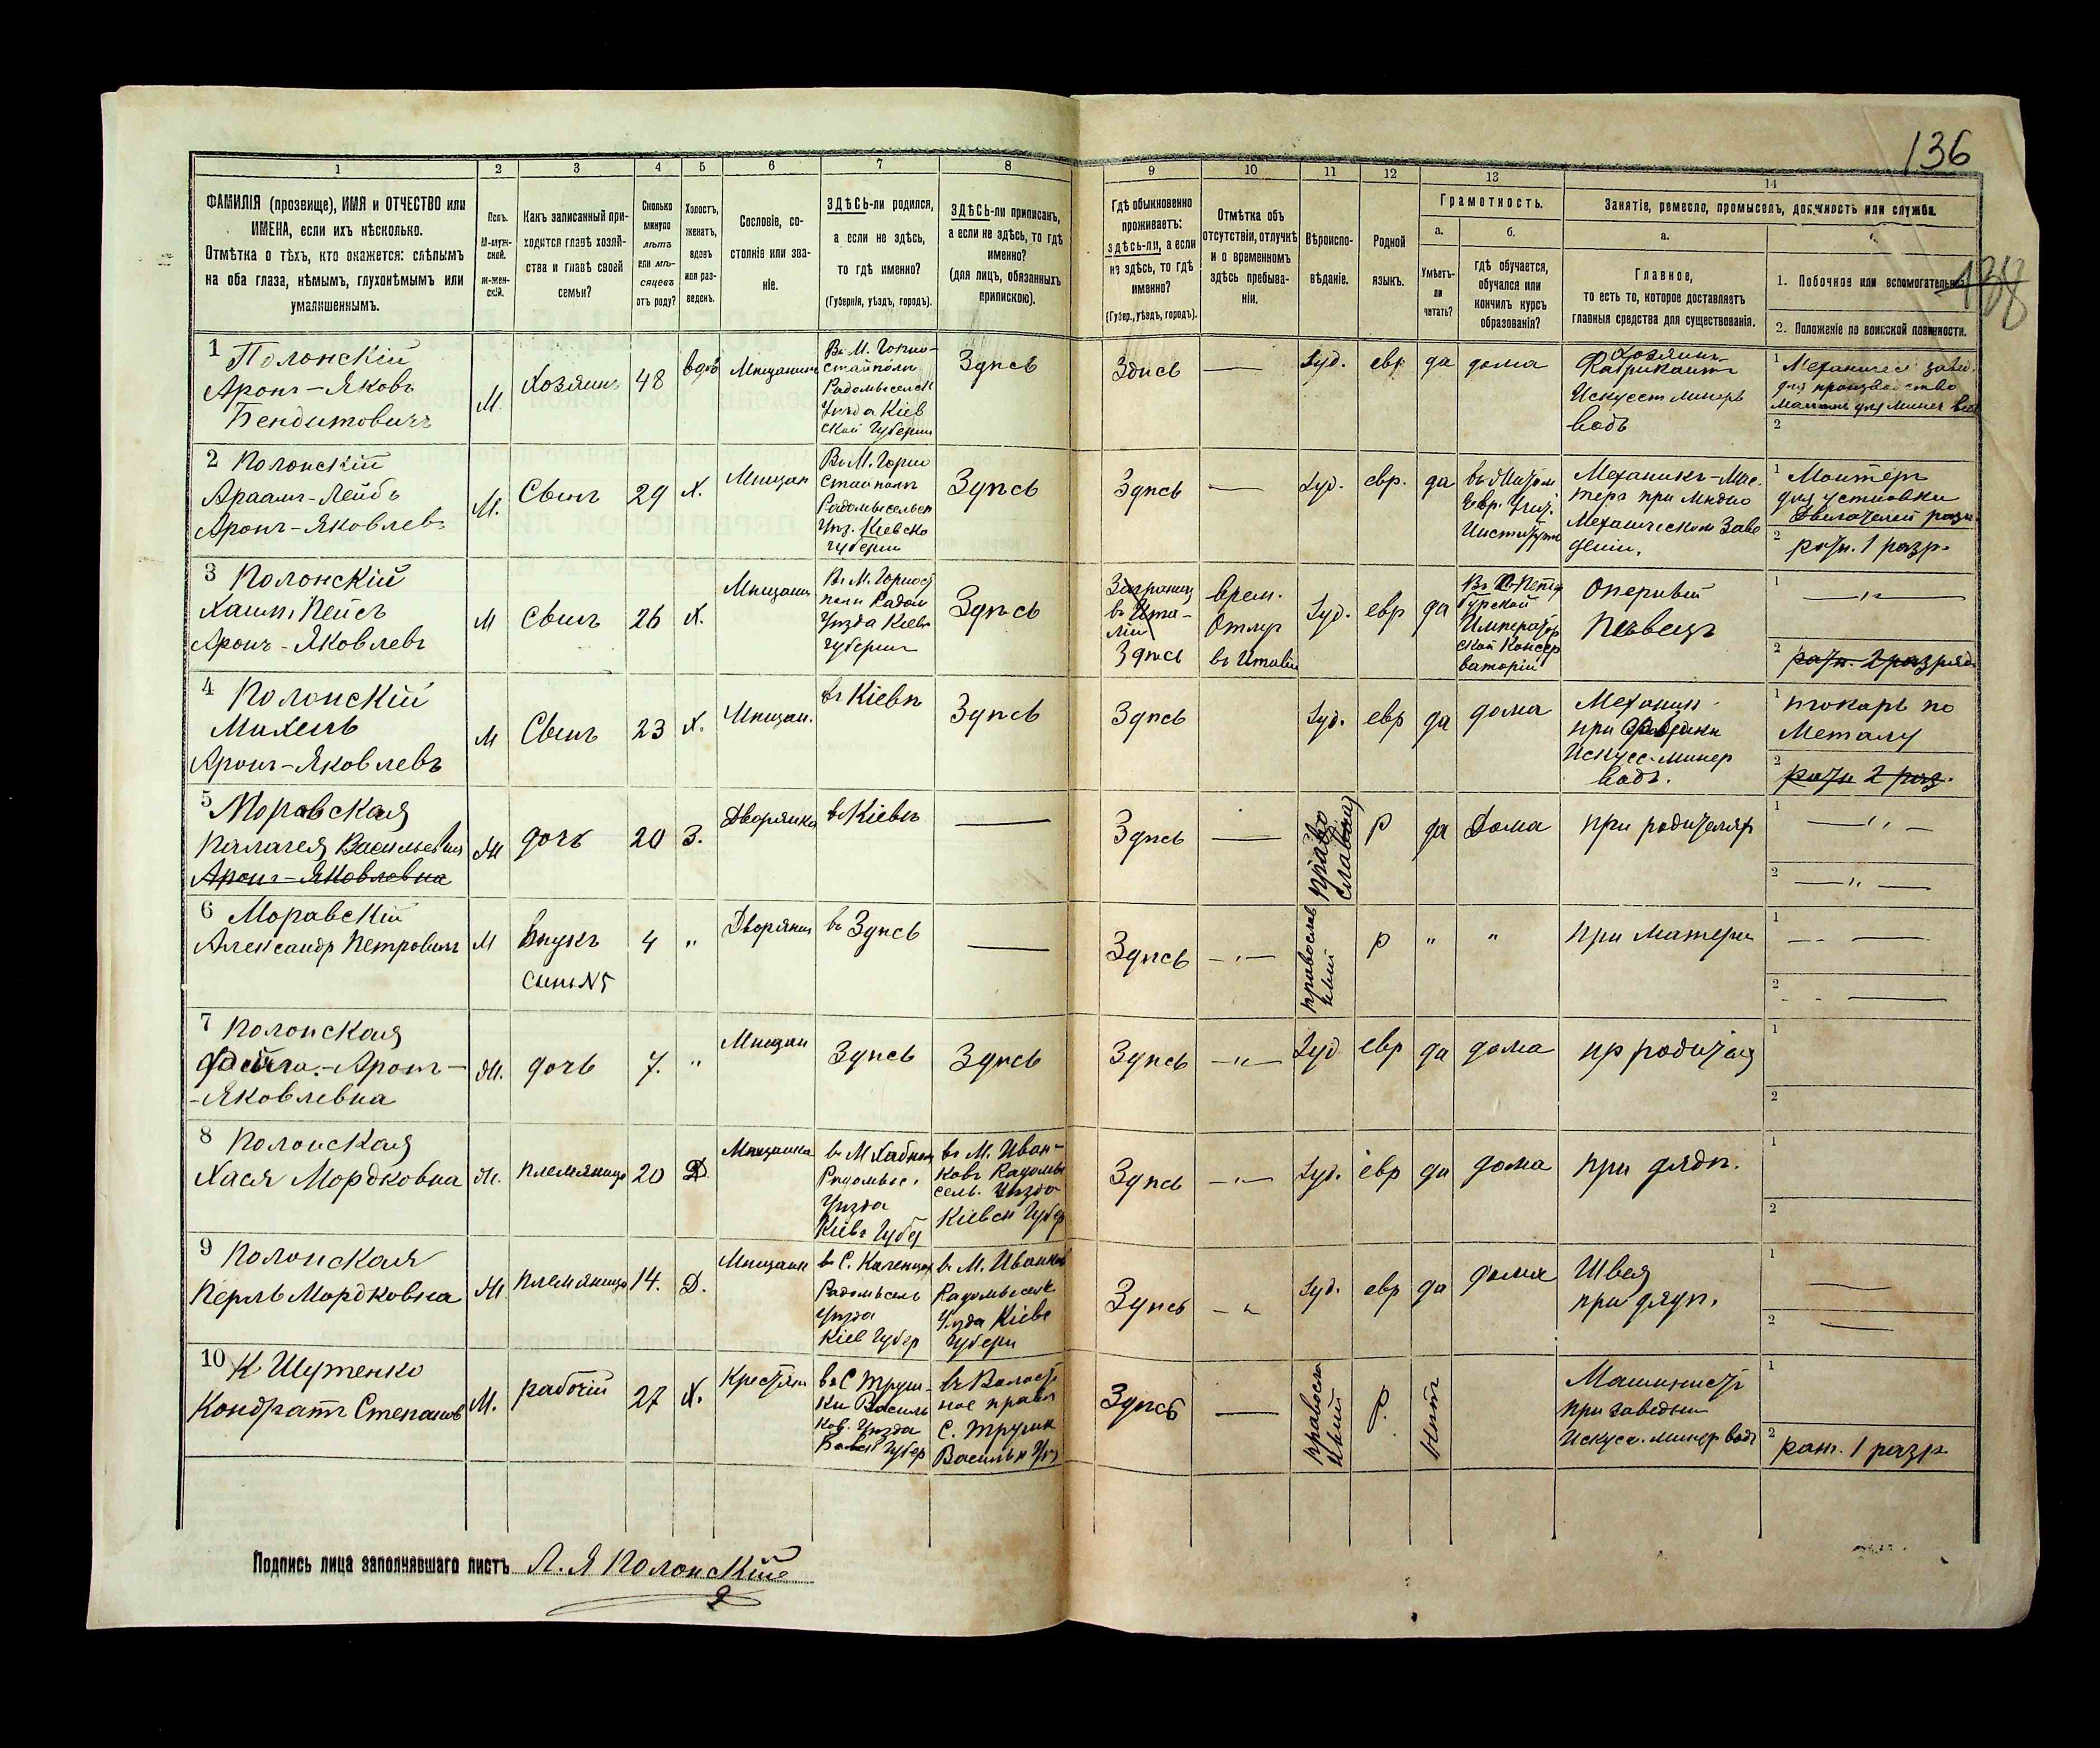 136
138
1
2
3
4
5
6
7
8
9
10
11
12
13
14
ФАМИЛІЯ (прозвище), ИМЯ и ОТЧЕСТВО или
ИМЕНА, если ихъ нѣсколько.
Отмѣтка о тѣхъ, кто окажется: слѣпымъ
на оба глаза, нѣмымъ, глухонѣмымъ или
умалишеннымъ.
Полъ.
М-муж-
ской.
ж-жен-
скій.
Какъ записанный при-
ходится главѣ хозяй-
ства и главѣ своей
семьи?
Сколько
минуло
лѣтъ
или мѣ-
сяцевъ
отъ роду?
Холостъ,
женатъ,
вдовъ
или раз-
веденъ.
Сословіе, со-
стояніе или зва-
ніе.
ЗДѢСЬ-ли родился,
а если не здѣсь,
то гдѣ именно?
(Губернія, уѣздъ, городъ).
ЗДѢСЬ-ли приписанъ,
а если не здѣсь, то гдѣ
именно?
(для лицъ, обязанныхъ
припискою).
Гдѣ обыкновенно
проживаетъ:
здѣсь-ли, а если
не здѣсь, то гдѣ
именно?
(Губер., уѣздъ, городъ).
Отмѣтка объ
отсутствіи, отлучкѣ
и о временномъ
здѣсь пребыва-
ніи.
Вѣроиспо-
вѣданіе.
Родной
языкъ.
Грамотность.
а.
Умѣетъ-
ли
читать?
б.
гдѣ обучается,
обучался или
кончилъ курсъ
образованія?
Занятіе, ремесло, промыселъ, должность или служба.
а.
Главное,
то есть то, которое доставляетъ
главныя средства для существованія.
1. Побочное или вспомогательное.
2. Положеніе по воинской повинности.
1 Полонскій
Аронъ-Яковъ
Бендитовичъ
М.
Хозяинъ
48
вдов
Мѣщанинъ
Въ М. Горно-
стайполь
Радомысельск
Уѣзда Кіев
ской Губерніи
Здѣсь
Здѣсь
—
Іуд.
евр
да
дома
Хозяинъ
Фабрикантъ
Искусст минерь
водъ
1
2
2 Полонскій
Араамъ-Лейбъ
Аронъ-Яковлевъ
М.
Сынъ
29
Х.
Мѣщан
Въ М. Горно
Стайполь
Радомысельск
Уѣз. Кіевско
губерніи
Здѣсь
Здѣсь
—
Іуд.
евр.
да
Евр. Учит.
Институт
Механикъ-Мас
теръ при Мѣдно
Механическом Заве
деніи.
1 Монтёръ
для установки
двигателей разн.
2 ратн. 1 разр.
3 Полонскій
Хаимъ Пейсъ
Аронъ-Яковлевъ
М
Сынъ
26
Х.
Мѣщанин
Въ М. Горност
поли Радом
Уѣзда Кіевс
губерніи
Здѣсь
Заграниц
въ Ита-
ліи
Здѣсь
врем.
Отлуч
въ Италіи
Іуд.
евр
да
Въ С Петер
бурской
Император
ской Консер
ваторіи
Оперный
Пѣвецъ
1
2 ратн. 2 разряд
4 Полонскій
Михель
Аронъ-Яковлевъ
М
Сынъ
23
Х.
Мѣщан.
въ Кіевѣ
Здѣсь
Здѣсь
Іуд.
евр
да
дома
Механик
при заведени
Искусс. минер
водъ.
1 токарь по
Металу
2 ратн 2 раз.
5 Моравская
Палагея Васильевна
Аронъ-Яковлевна
Ж
дочь
20
З.
Дворянка
въ Кіевѣ
—
Здѣсь
—
православная
Р
да
Дома
при родителях
1
2
6 Моравскій
Александр Петровичъ
М
Внукъ
сынъ №5
4
"
Дворянин
въ Здѣсь
—
Здѣсь
православ
ный
Р
"
"
При матери
1
2
7 Полонская
Фейга-Аронъ-
-Яковлевна
Ж.
дочь
7.
"
Мѣщан
Здѣсь
Здѣсь
Здѣсь
Іуд
евр
да
дома
пр родителя
1
2
8 Полонская
Хася Мордковна
Ж.
племяница
20
Д
Мѣщанка
въ М Хабном
Радомыс.
Уѣзда
Кіевс Губер
въ М. Иван-
ковъ Радомы
сель. Уѣзда
Кіевск Губер
Здѣсь
Іуд.
евр
да
дома
При дядѣ.
1
2
9 Полонская
Перль Мордковна
Ж
Племяница
14.
Д.
Мѣщанк
Радомысель
Уѣзда
Кіев Губер
въ М. Иванков
Радомысельс
Уѣзда Кіевс
Губерн
Здѣсь
Іуд.
евр
да
дома
Швея
при дядѣ.
1
2
10 К Шутенко
Кондратъ Степанов
М.
рабочій
27
Х.
Крестян
въ С Труш-
ки Василь
ков. Уѣзда
въ Волост
ное правл
С. Трушк
Васильк Уѣз
Здѣсь
—
правосла
вный
Р.
Нѣтъ
Машинистъ
при заведени
Искусс. минер водъ
1
2 рат. 1 разр
Подпись лица заполнявшаго листъ А. Я Полонскій